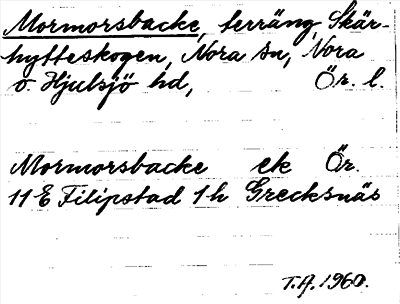 Mormorsbacke, terräng, Skär-
hytteskogen, Nora sn, Nora
o. Hjulsjö hd, Ör. l.
Mormorsbacke ek Ör.
11 E Filipstad 1 h Grecksnäs
T.A. 1960.